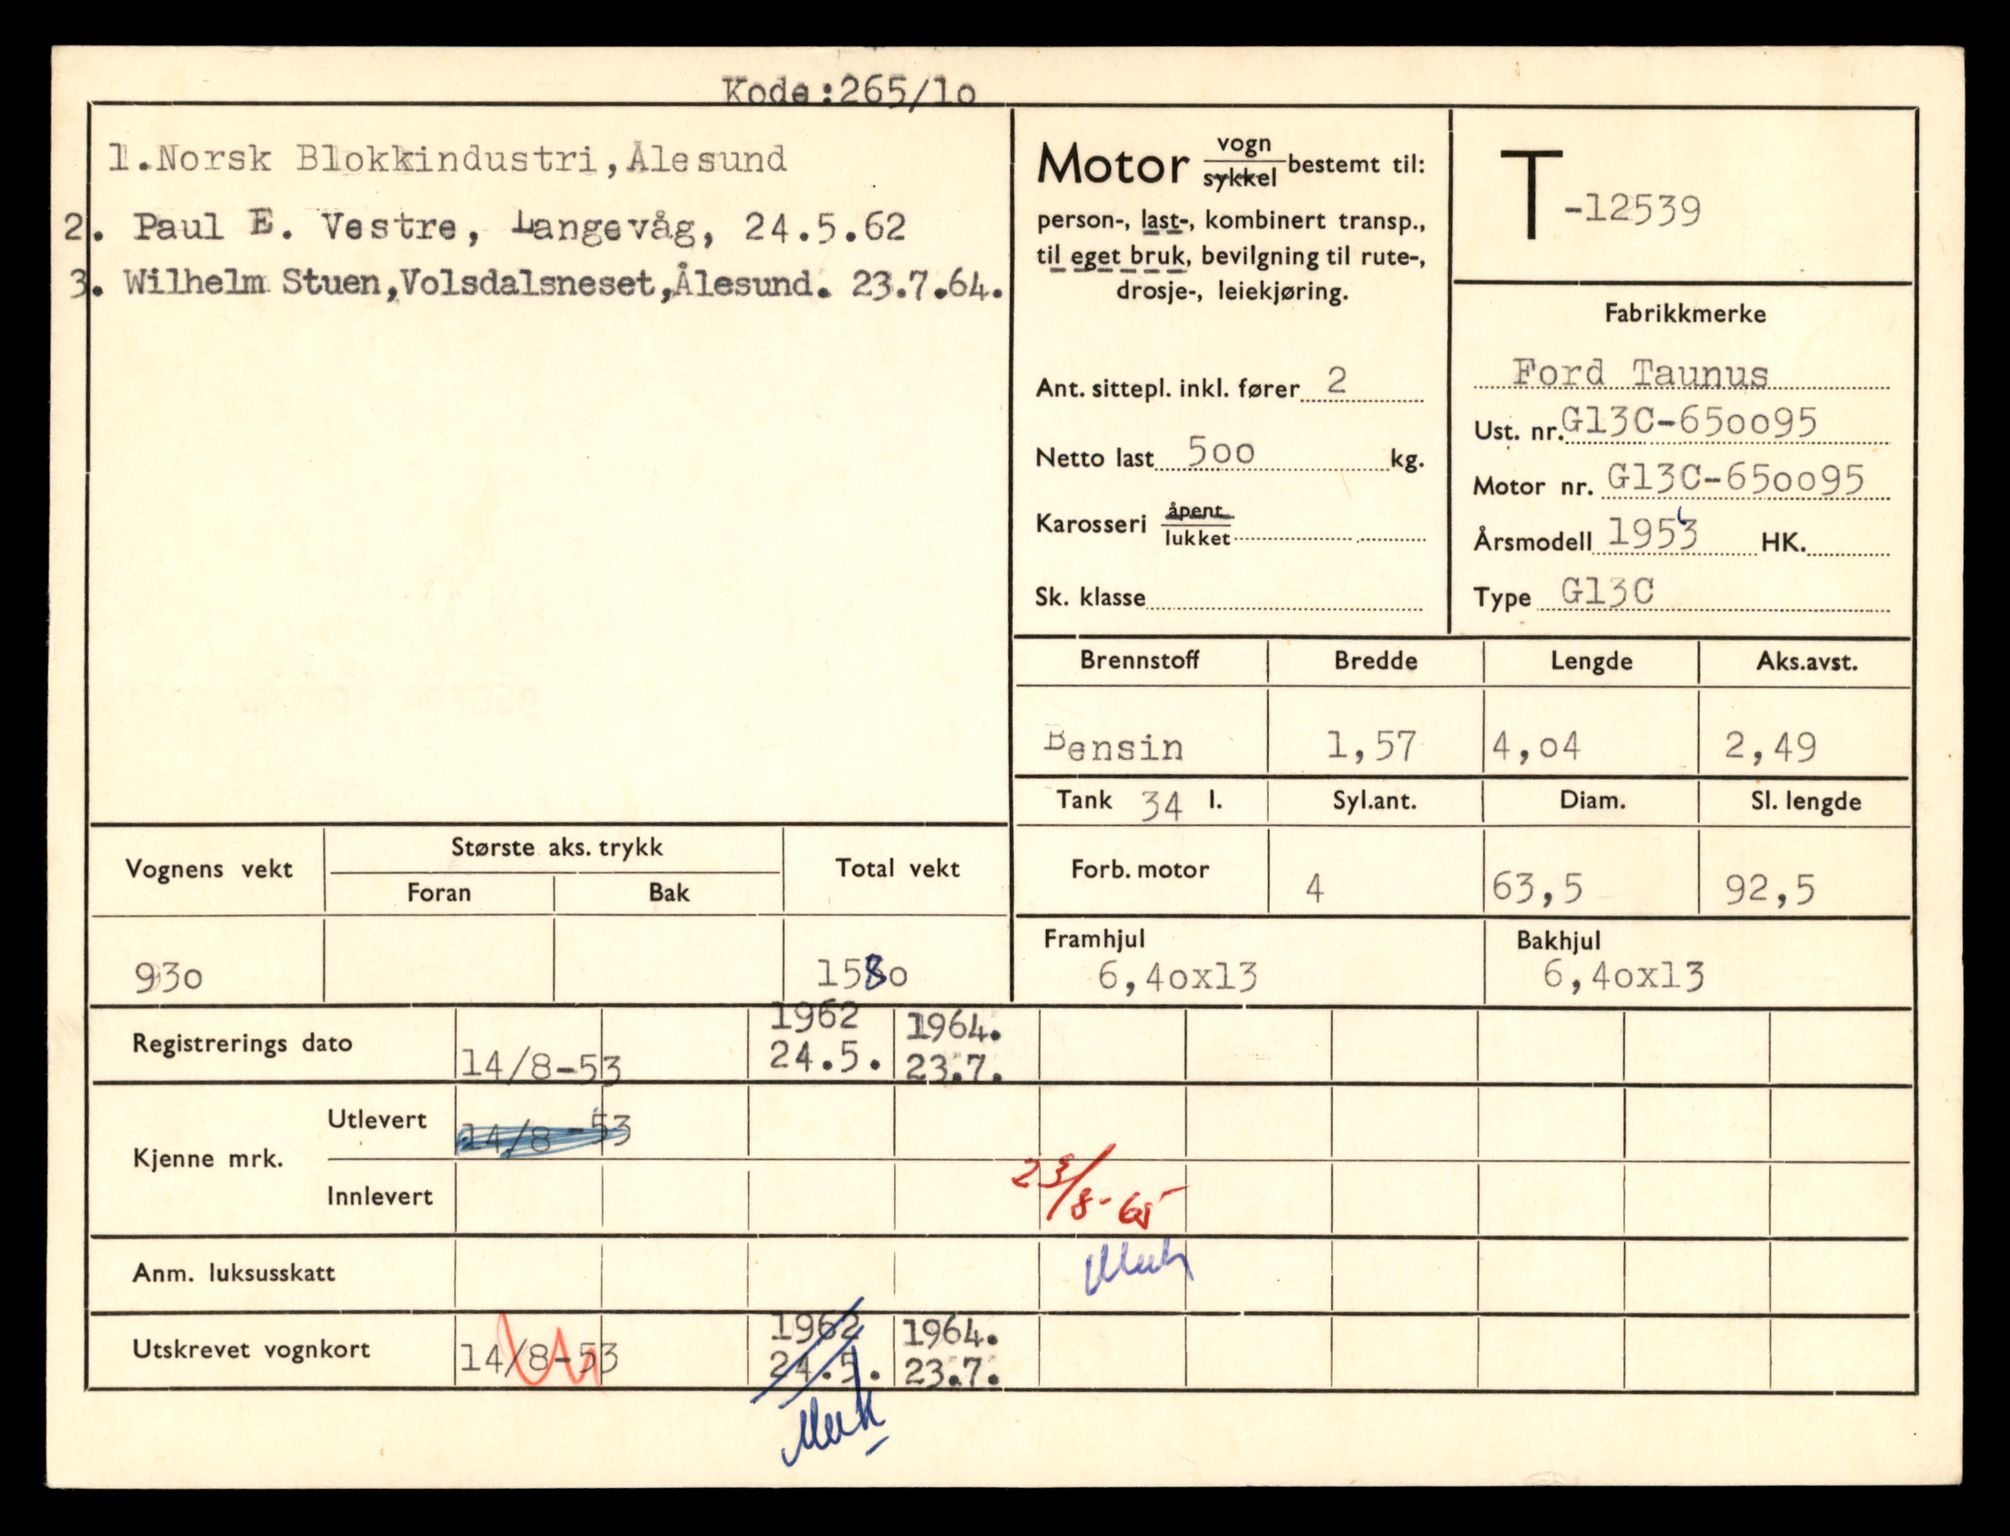 Kode:265/lo
1.Norsk Blokkindustri,Ålesund
2. Paul E. Vestre, Langevåg, 24.5.62
3. Wilhelm Stuen,Volsdalsneset,Ålesund. 23.7.64.
Motor vogn bestemt til:
sykkel
person-, last-, kombinert transp.,
til eget bruk, bevilgning til rute-,
drosje-, leiekjøring.
Ant. sittepl. inkl. fører 2
Netto last 5oo kg.
Karosseri åpent
lukket
Sk. klasse
T-12539
Fabrikkmerke
Ford Taunus
Ust. nr. G13C-65oo95
Motor nr. G13C-65oo95
Årsmodell 1953 HK.
Type G13C
Brennstoff Bredde Lengde Aks.avst.
Bensin 1,57 4,o4 2,49
Tank 34 l. Syl.ant. Diam. Sl. lengde
Forb. motor 4 63,5 92,5
Framhjul Bakhjul
6,4ox13 6,4ox13
Vognens vekt Største aks. trykk Total vekt
Foran Bak
93o 158o
Registrerings dato 14/8-53 1962 24.5. 1964. 23.7.
Kjenne mrk. Utlevert 14/8-53
Innlevert 23/8-65
Anm. luksusskatt
Utskrevet vognkort 14/8-53 1962 24.5. 1964. 23.7.